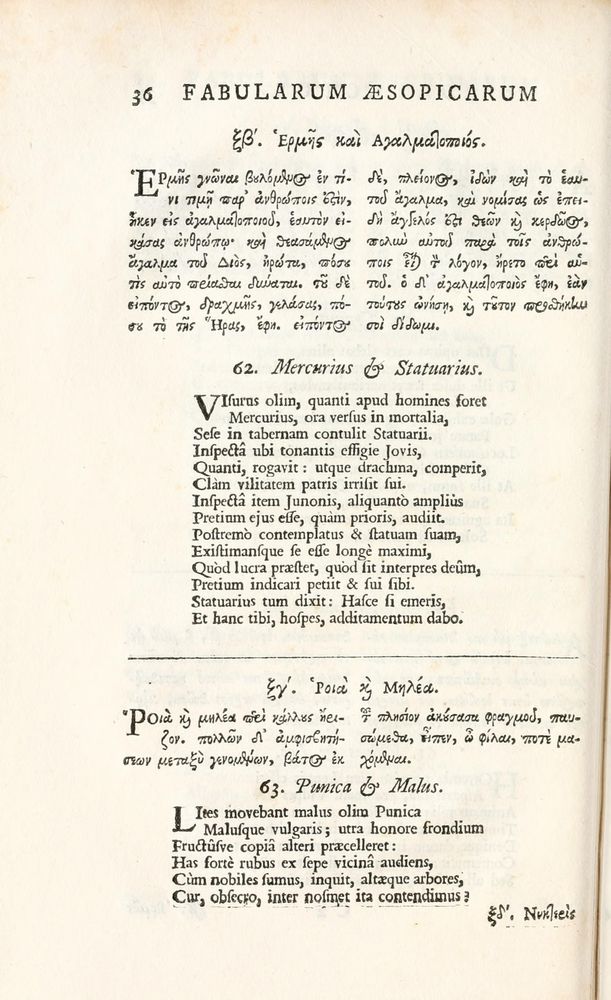 36 FABULARUM ÆSOPICARUM
ξβ'. Ἑρμῆς καὶ Αγαλματοποιός.
ἙΡμῆς γνῶναι βουλόμενος ἐν τί-
νι τιμῇ παρ' ἀνθρώποις ἐςὶν,
ἧκεν εἰς ἀγαλματοποιοῦ, ἑαυτὸν εἰ-
κάσας ἀνθρώπῳ· καὶ θεασάμενος
ἄγαλμα τοῦ Διὸς, ἠρώτα, πόσου
τὶς αὐτὸ πρίαθαι δύναται. τοῦ δὲ
εἰπόντος, δραχμῆς, γελάσας, πό-
σου τὸ τῆς Ἥρας, ἔφη. εἰπόντος
δὲ, πλείονος, ἰδὼν καὶ τὸ ἑαυ-
τοῦ ἄγαλμα, καὶ νομίσας ὡς ἐπει-
δὴ ἄγγελός ἐςι θεῶν καὶ κερδῶος,
πολὺν αὐτοῦ παρὰ τοῖς ἀνθρώ-
ποις εἶναι τὸν λόγον, ἤρετο περὶ αὑ-
τοῦ. ὁ δ' ἀγαλματοποιὸς ἔφη, ἐὰν
τούτους ὠνήσῃ, καὶ τοῦτον προσθήκην
σοὶ δίδωμι.
62. Mercurius & Statuarius.
VIsurus olim, quanti apud homines foret
Mercurius, ora versus in mortalia,
Sese in tabernam contulit Statuarii.
Inspectâ ubi tonantis effigie Jovis,
Quanti, rogavit: utque drachma, comperit,
Clàm vilitatem patris irrisit sui.
Inspectâ item Junonis, aliquantò ampliùs
Pretium ejus esse, quàm prioris, audiit.
Postremò contemplatus & statuam suam,
Existimansque se esse longè maximi,
Quòd lucra præstet, quòd sit interpres deûm,
Pretium indicari petiit & sui sibi.
Statuarius tum dixit: Hasce si emeris,
Et hanc tibi, hospes, additamentum dabo.
ξγ'. Ῥοιὰ καὶ Μηλέα.
ῬΟιὰ καὶ μηλέα περὶ κάλλους ἤρι-
ζον. πολλῶν δ' ἀμφισβητή-
σεων μεταξὺ γενομένων, βάτος ἐκ
τοῦ πλησίον ἀκούσασα φραγμοῦ, παυ-
σώμεθα, εἶπεν, ὦ φίλαι, ποτὲ μα-
χόμεναι.
63. Punica & Malus.
LItes movebant malus olim Punica
Malusque vulgaris; utra honore frondium
Fructûsve copiâ alteri præcelleret:
Has fortè rubus ex sepe vicinâ audiens,
Cùm nobiles sumus, inquit, altæque arbores,
Cur, obsecro, inter nosmet ita contendimus?
ξδ'. Νυκτερὶς